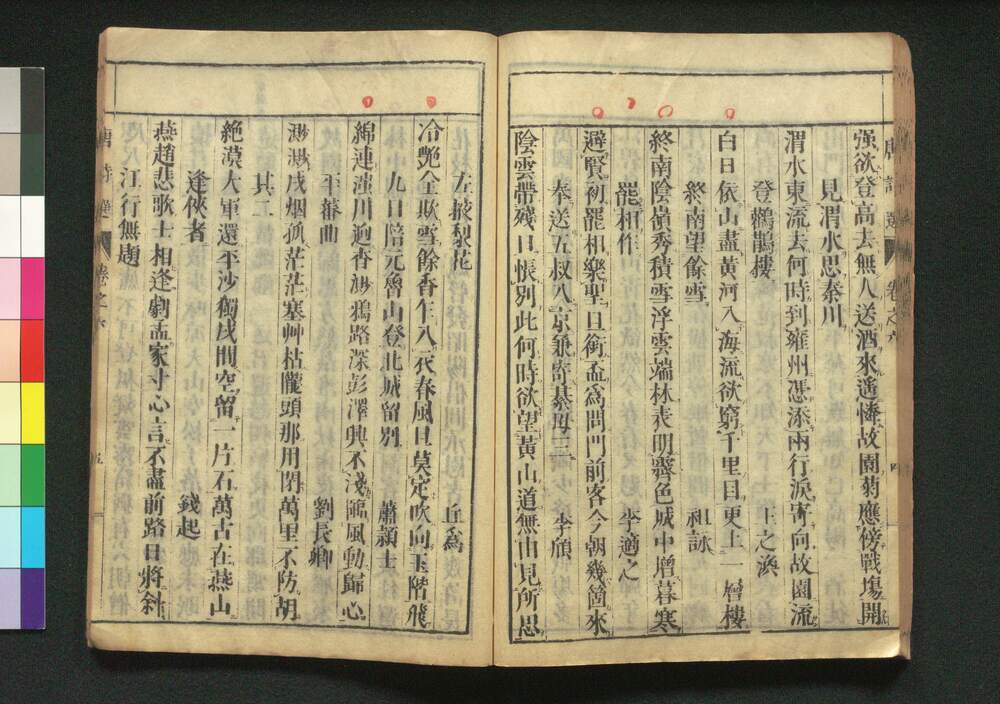 唐詩選 卷之六 四
强欲登高去無人送酒來遙憐故園菊應傍戰場開
見渭水思秦川
渭水東流去何時到雍州憑添兩行淚寄向故園流
登鸛鵲樓 王之渙
白日依山盡黃河入海流欲窮千里目更上一層樓
終南望餘雪 祖詠
終南陰嶺秀積雪浮雲端林表明霽色城中增暮寒
罷相作 李適之
避賢初罷相樂聖且銜盃爲問門前客今朝幾箇來
奉送五叔入京兼寄綦毋三 李頎
陰雲帶殘日悵別此何時欲望黃山道無由見所思
左掖梨花 丘爲
冷艷全欺雪餘香乍入衣春風且莫定吹向玉階飛
九日陪元魯山登北城留別 蕭穎士
綿連滍川迥杳渺鴉路深彭澤興不淺臨風動歸心
平蕃曲 劉長卿
渺渺戍烟孤茫茫塞艸枯隴頭那用閉萬里不防胡
其二
絶漠大軍還平沙獨戍閒空留一片石萬古在燕山
逢俠者 錢起
燕趙悲歌士相逢劇孟家寸心言不盡前路日將斜
江行無題
唐詩選 卷之六 五